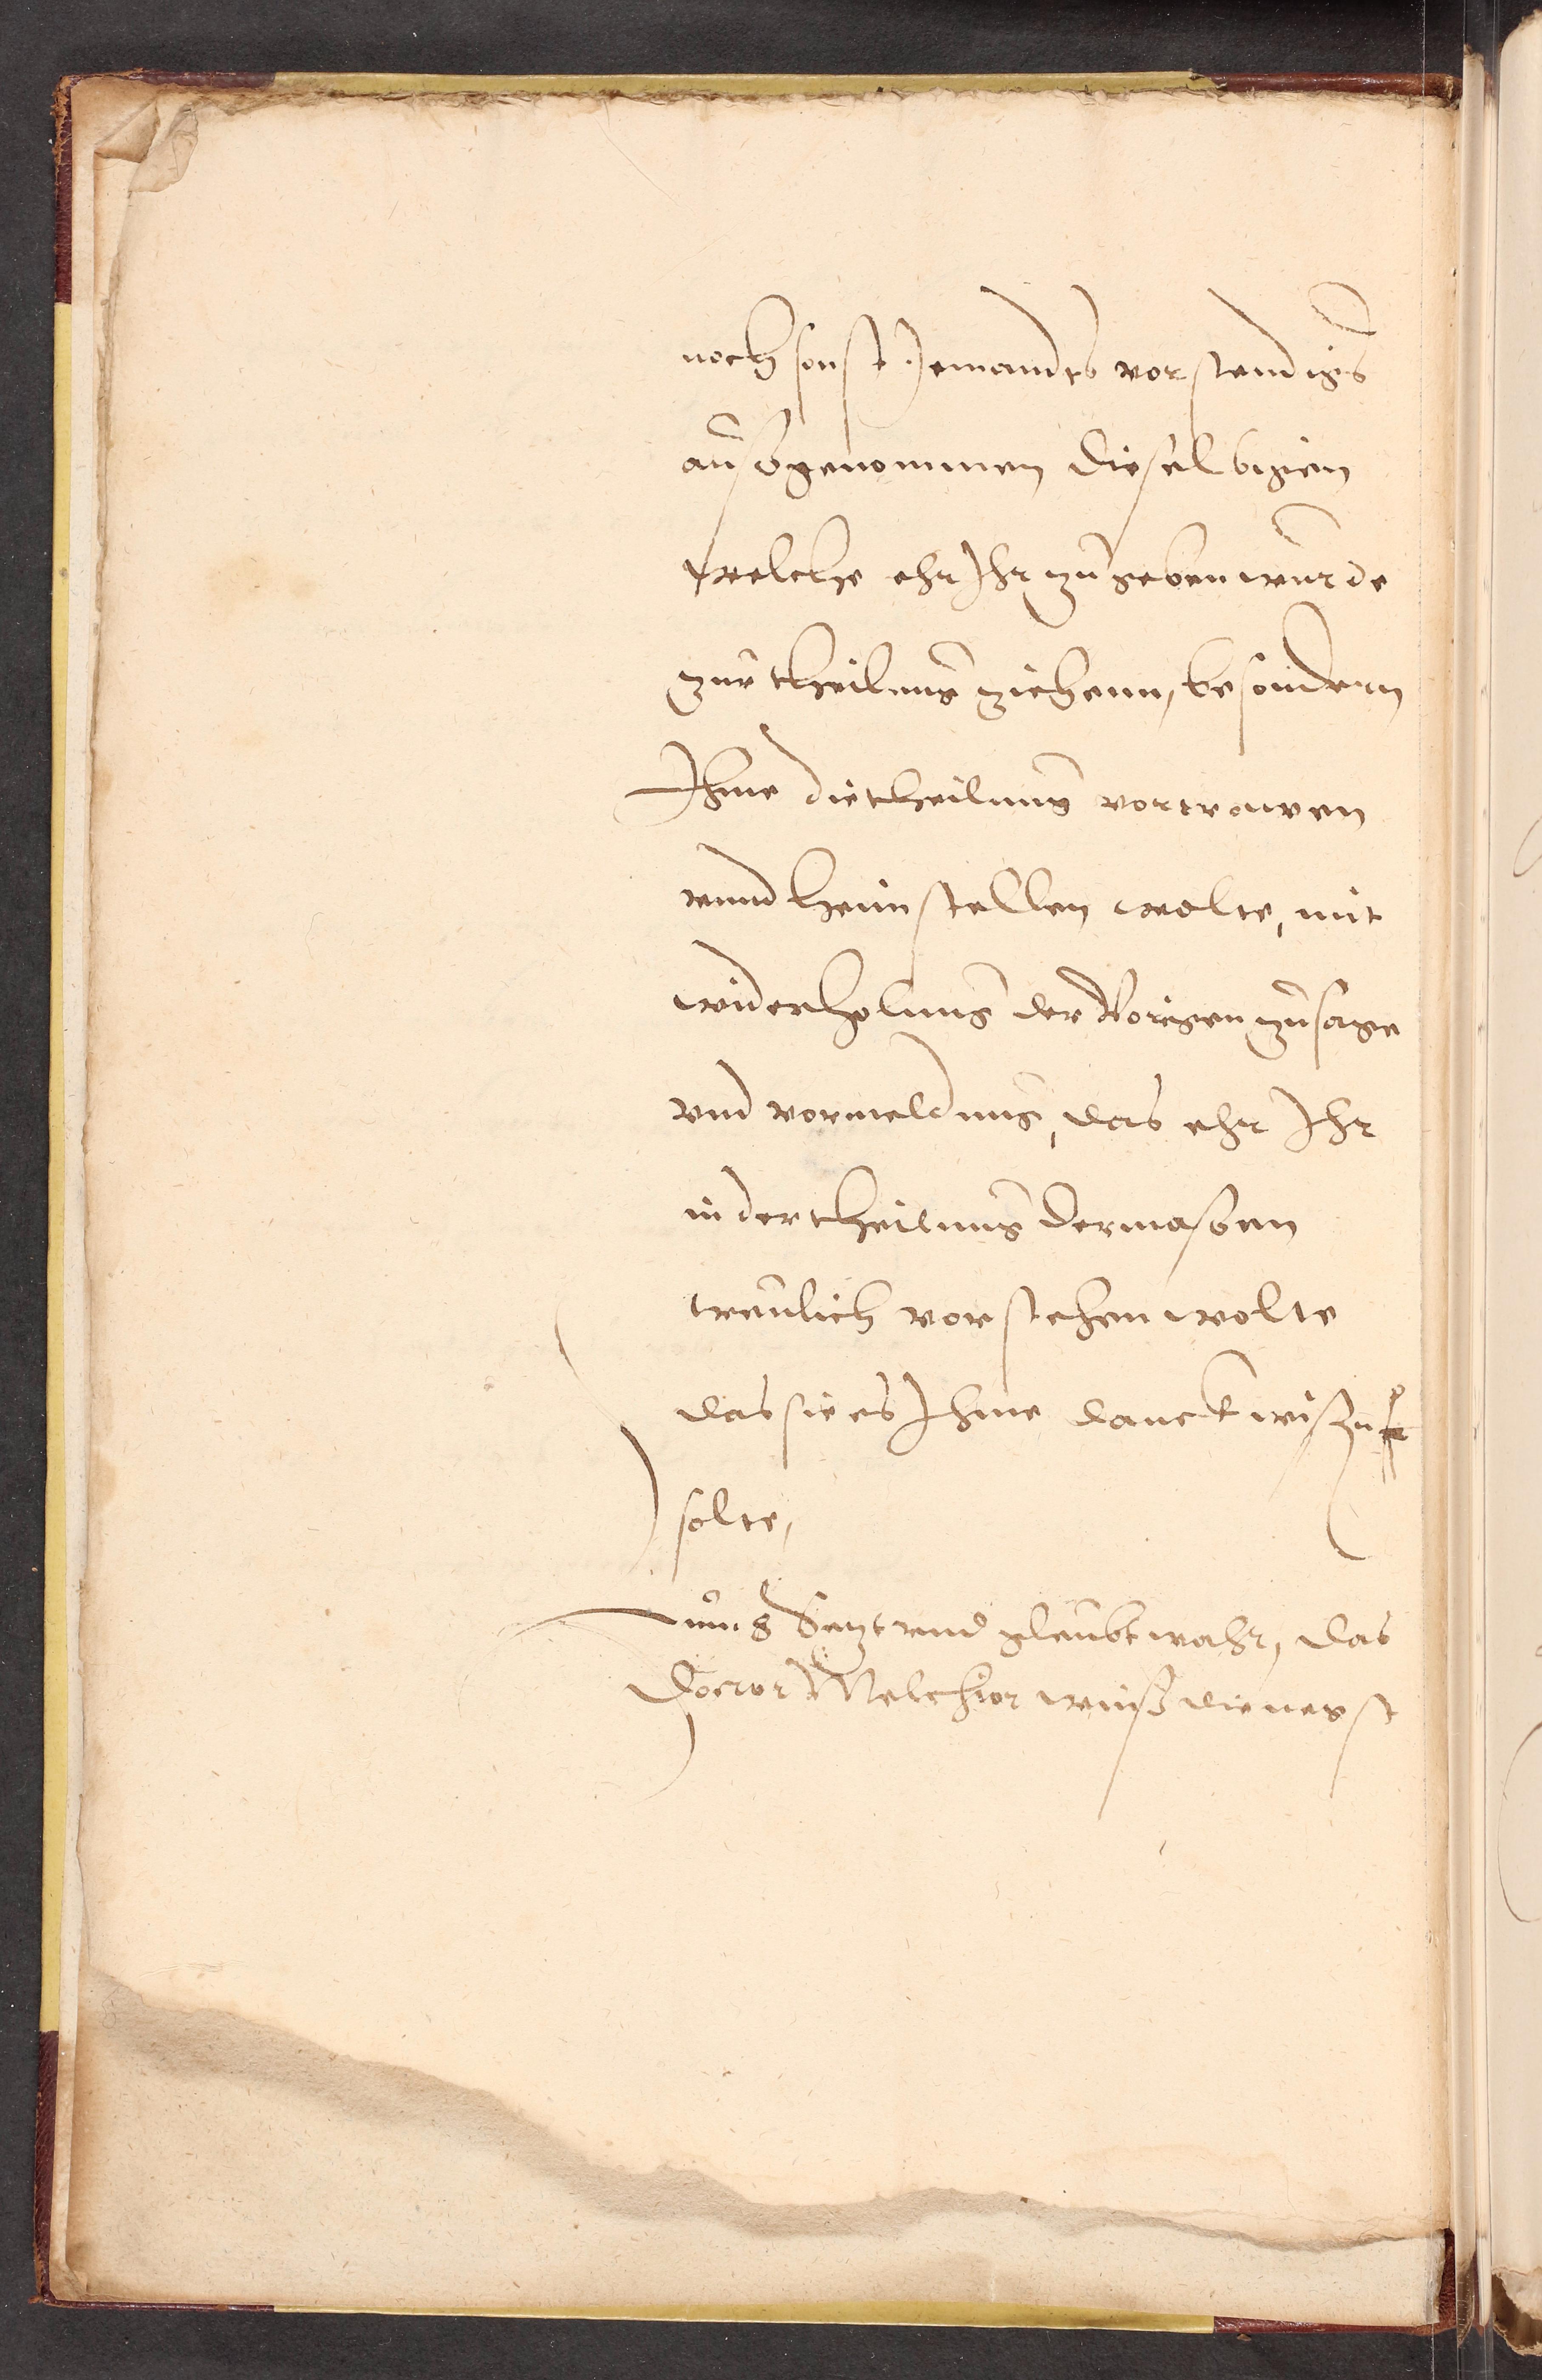 noch sonst Jemandts vorstendigs
außgenommen dieselbigen
welche ehr Ihr zugeben wurde
zur theilung ziehenn, besondern
Ihme die theilung vortrawen
vnnd heimstellen wolte, mit
widerholung der Vorigen zusage
vnd vormeldung, das ehr Ihr
in der theilung dermaßen
treulich vorstehen wolte
das sie es Ihme danck wißen
solte,
Setzt vnd glaubt wahr, das
Doctor Melchior weiß dienerst